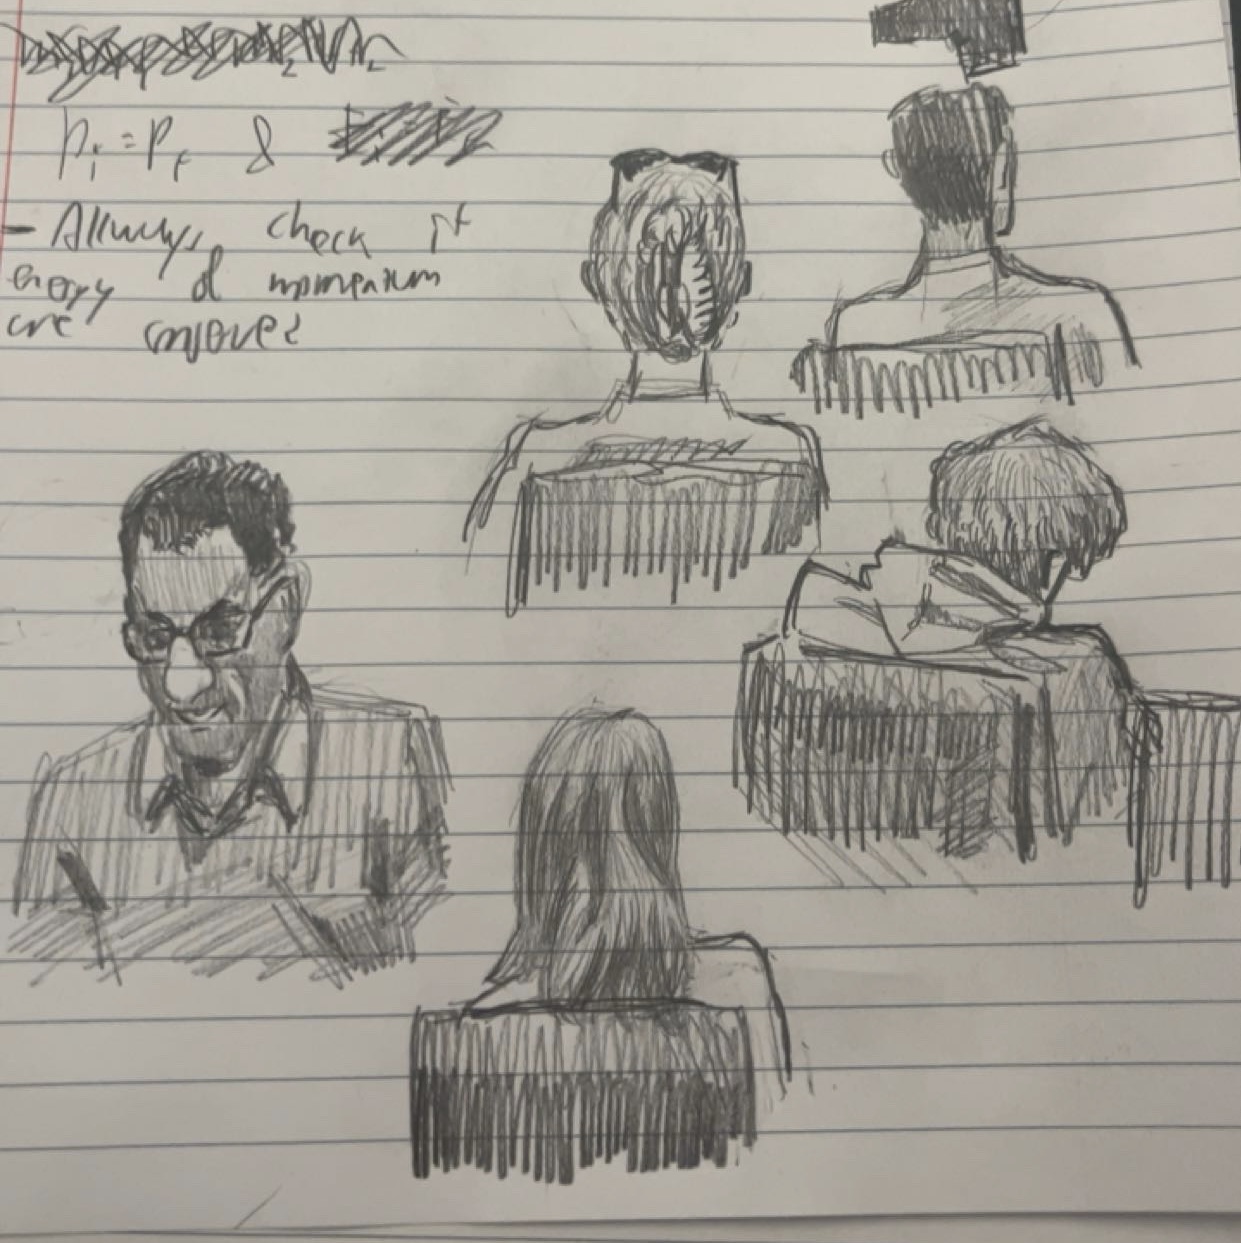 Pi = Pf &
- Allways check if
energy & momentum
are conserved